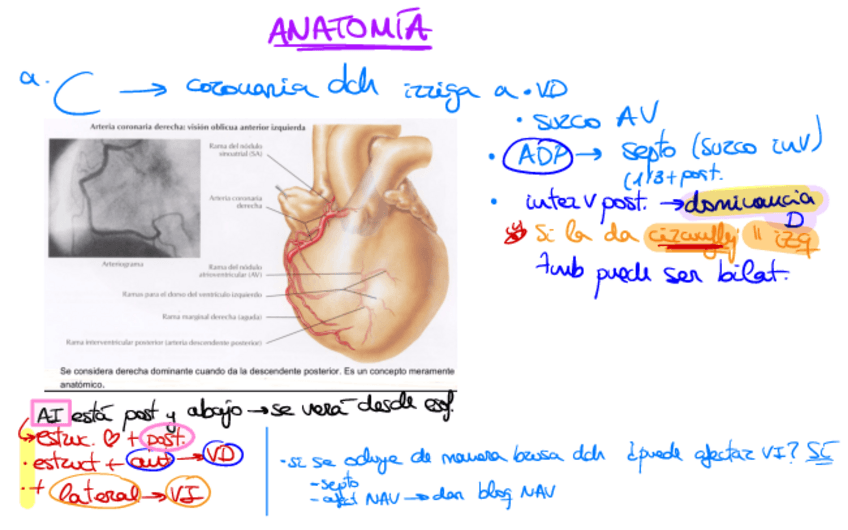 ANATOMÍA
a. C → coronaria dch irriga a • VD
• surco AV
• ADP → septo (surco inV)
(1/3 + post.
• interv post. → dominancia D
Si la da circunflej " izq
tmb puede ser bilat.
Arteria coronaria derecha: visión oblicua anterior izquierda
Rama del nódulo
sinoatrial (SA)
Arteria coronaria
derecha
Arteriograma
Rama del nódulo
atrioventricular (AV)
Ramas para el dorso del ventrículo izquierdo
Rama marginal derecha (aguda)
Rama interventricular posterior (arteria descendente posterior)
Se considera derecha dominante cuando da la descendente posterior. Es un concepto meramente
anatómico.
AI está post y abajo → se verá desde esof.
estruc. ♡ + post.
• estruct + ant → VD
• + lateral → VI
• si se ocluye de manera brusa dch ¿puede afectar VI? SÍ
- septo
- afect NAV → dan bloq NAV